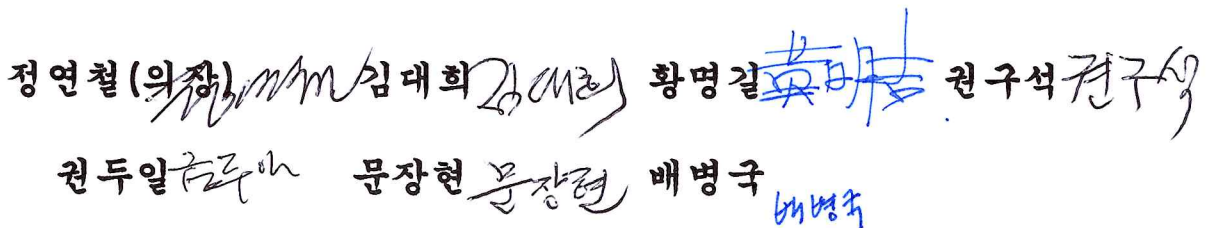 정연철(의장) 김대희 김대희 황명길 黃明吉 권구석 권구석
권두일 문장현 문장현 배병국 배병국